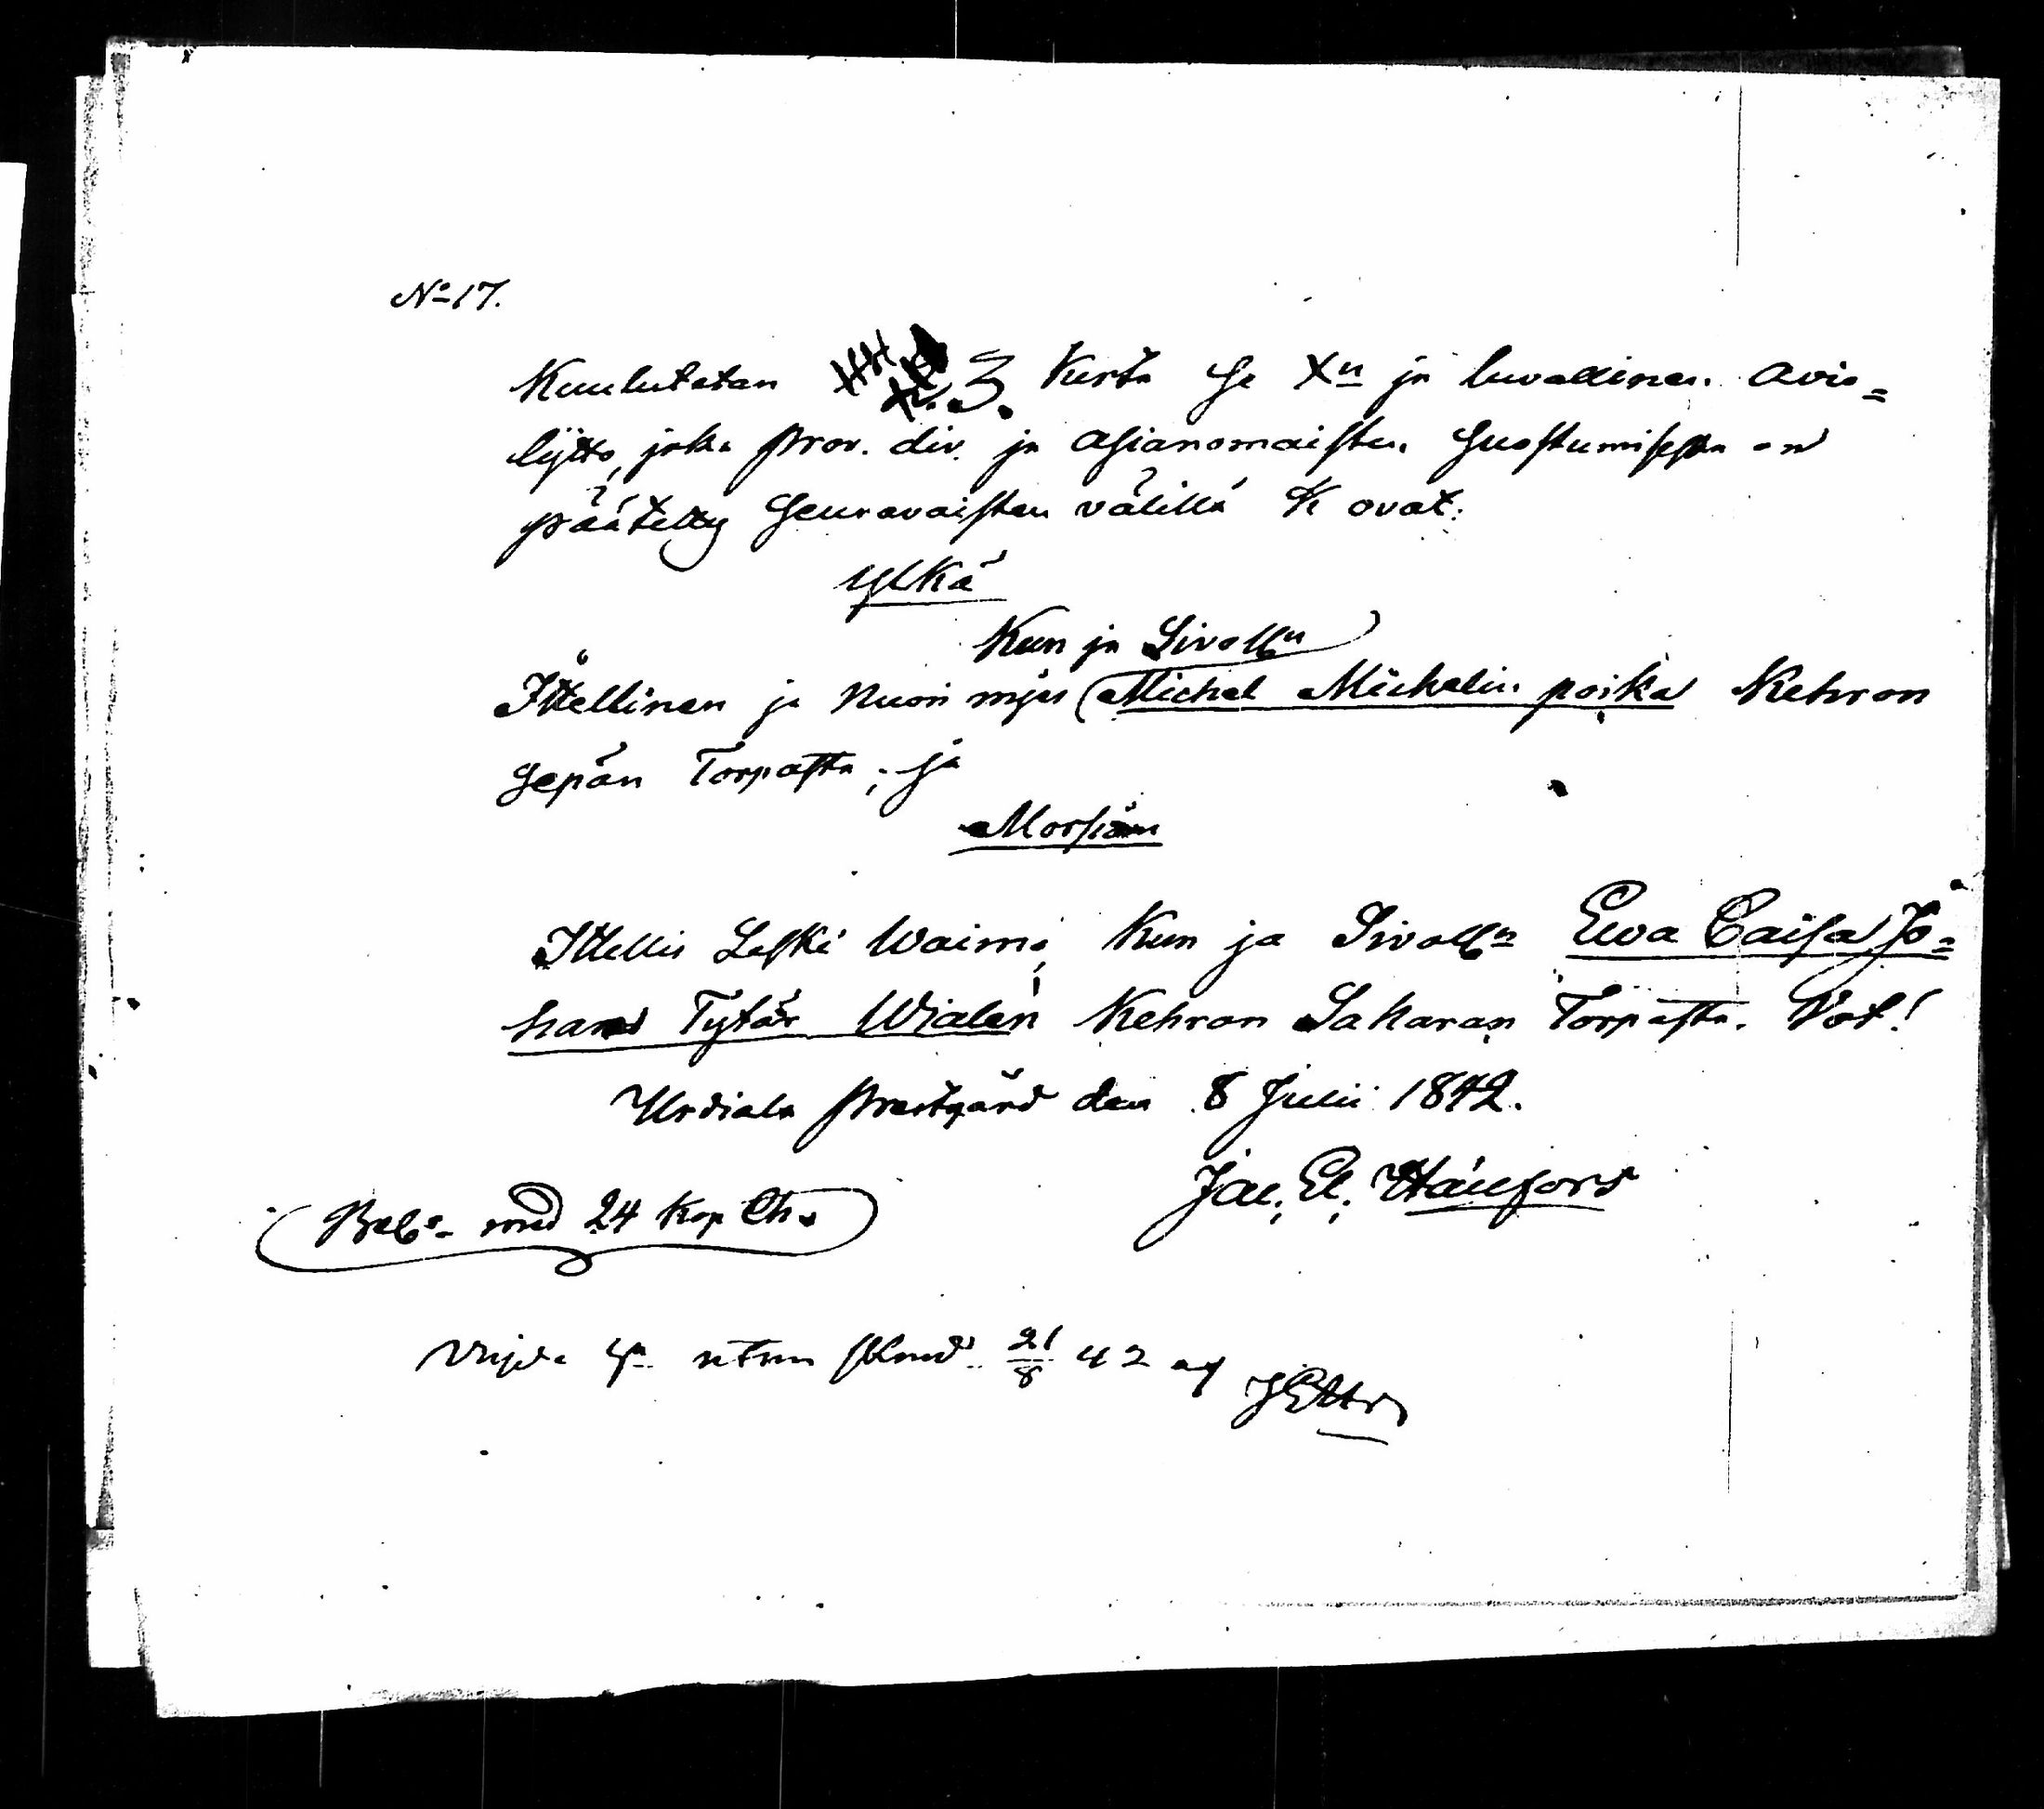 No 17.
Kuulutetan 3. Kerta Se Xn ja luvallinen avio=
lijtto, joka prov. div. ja asianomaisten suostumisesta on
päätetty Seuravaisten välillä K ovat:
Ylkä
Kun ja Sivolln
Ittellinen ja nuori mjes Michel Michelin poika Kehron
Sepän Torpasta; ja
Morsian
Ittellis Leski Waimo, Kun ja Sivolln Ewa Caisa Jo=
hans Tytär Wialen Kehron Sakaran Torpasta. Vot!
Urdiala Prestgård den 8 Julii 1842.
Jac. El.
med 24 Kop
Vigde utsupra 21/8 42 af